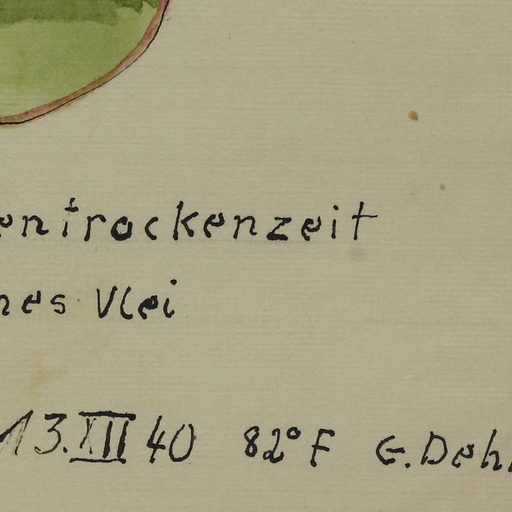 entrockenzeit
nes Vlei
13.XII 40 82°F G.Deh